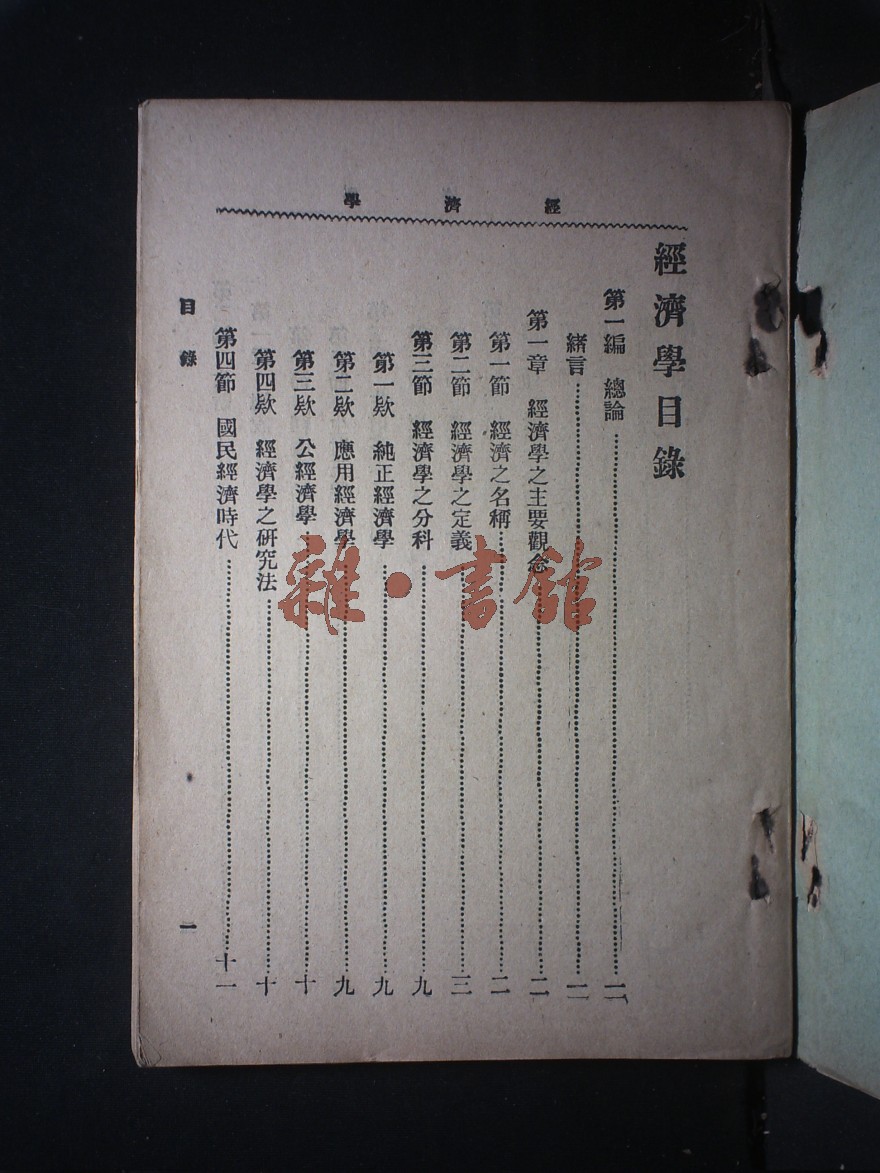 經濟學
經濟學目錄
第一編 總論……二
緒言……二
第一章 經濟學之主要觀念……二
第一節 經濟之名稱……二
第二節 經濟學之定義……三
第三節 經濟學之分科……九
第一欵 純正經濟學……九
第二欵 應用經濟學……九
第三欵 公經濟學……十
第四欵 經濟學之研究法……十
第四節 國民經濟時代……十一
目錄
一
雜·書館